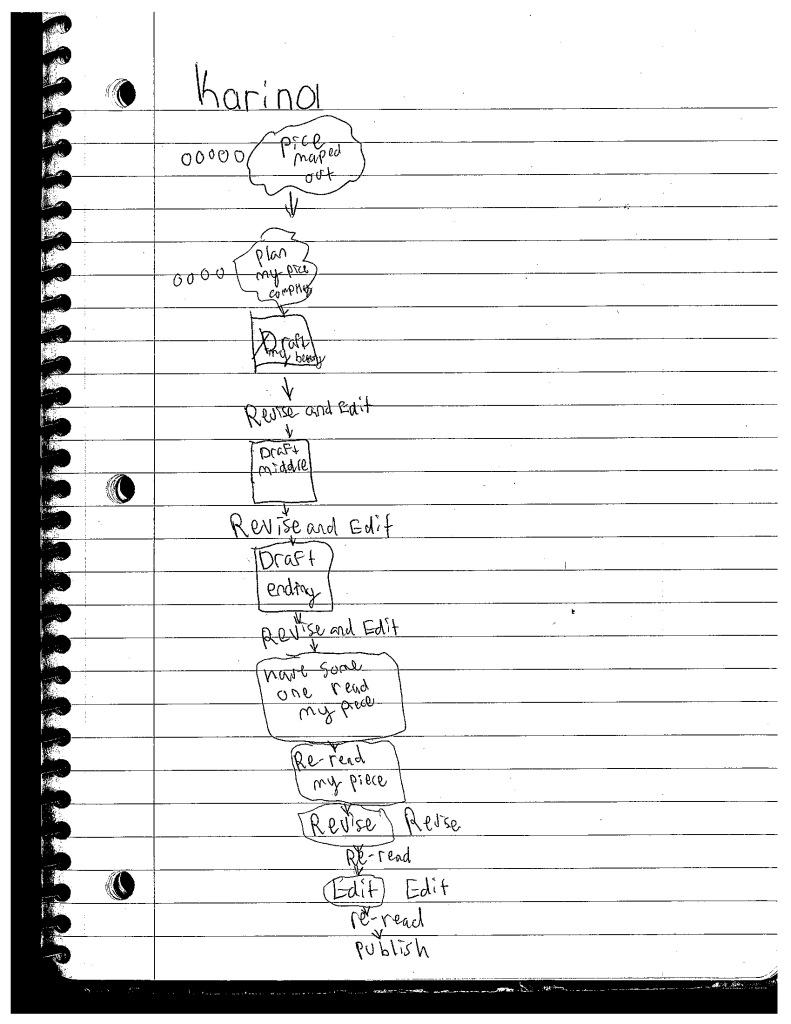 Karina
00000
pice
maped
out
0000
plan
my pice
Draft
my
Revise and Edit
Draft
middle
Revise and Edit
Draft
ending
Revise and Edit
have some
one read
my piece
Re-read
my piece
Revise Revise
Re-read
Edit Edit
re-read
publish